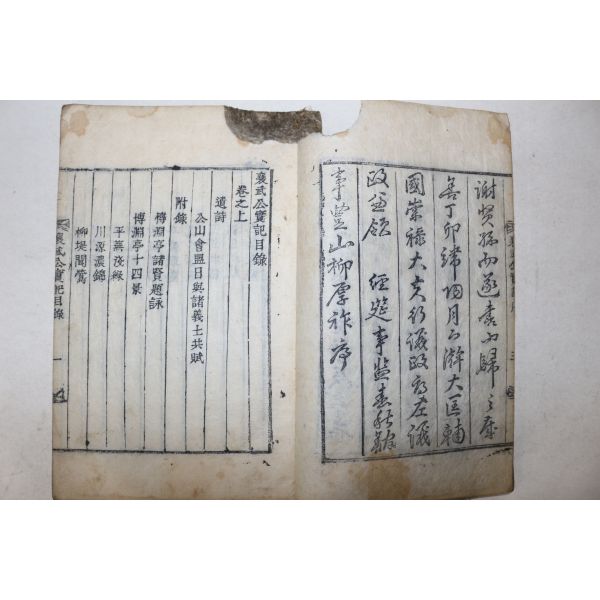 謝賢孫而遂書而歸之歲
舍丁卯陽月上澣大匡輔
國崇祿大夫行議政府左議
政兼領 經筵事監春秋館
事豊山柳厚祚序
襄武公實記目錄
卷之上
遺詩
公山會盟日與諸義士共賦
附錄
博淵亭諸賢題詠
博淵亭十四景
平蕪茂綠
川源濃錦
柳堤聞鶯
襄武公實記目錄 一